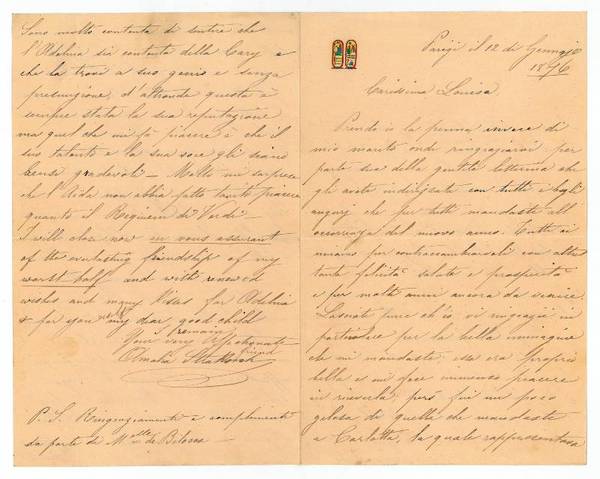 Parigi il 12 di Gennajo
1876
Carissima Louisa.
Prendo io la penna invece di
mio marito onde ringraziarvi per
parte sua della gentile letterina che
gli avete indirizzata con tutti i begli
augurj che per tutti mandaste all
occorrenza del nuovo anno. Tutti ci
uniamo per contraccambiarvali con altret
tanta felicità salute e prosperità
e per molti anni ancora da venire.
Lasciate pure ch'io vi ringrazii in
particolare per la bella immagine
che mi mandaste, essa era proprio
bella e mi fece immenso piacere
in riceverla, però fui un poco
gelosa di quella che mandaste
a Carlotta, la quale rappresentava
Sono molto contenta di sentire che
l'Adelina sia contenta della Cary e
che la trovi a suo genio e senza
presunzione, d'altronde questa è
sempre stata la sua reputazione
ma quel che mi fà piacere è che il
suo talento e la sua voce gli siano
graditi — Molto mi sorprese
che l'Aida non abbia fatto tanto piacere
quanto il Requiem di Verdi —
I will close now in
of the everlasting friendship of my
worst half and with renewed
wishes and many kisses for Adelina
& for you my dear good child
I remain
Your very affectionate
friend
Amalia Strakosch
P. S. Ringraziamente e complimenti
da parte di M.lle de